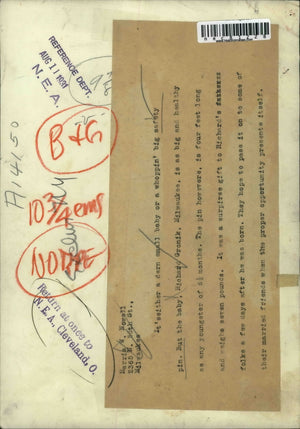 REFERENCE DEPT.
AUG 11 1931
N. E. A.
A14150
B+G
10 3/4 ems
NO DATE
Return at once to
N.E.A., Cleveland, O.
Harris W. Nowell
Milwaukee
It's either a darn small baby or a whoppin' big safety
pin. But the baby, Richard Cronik, Milwaukee, is as big and healthy
as any youngster of 5½ months. The pin however, is four feet long
and weighs seven pounds. It was a surprise gift to Richard's
folks a few days after he was born. They hope to pass it on to some of
their married friends when the proper opportunity presents itself.